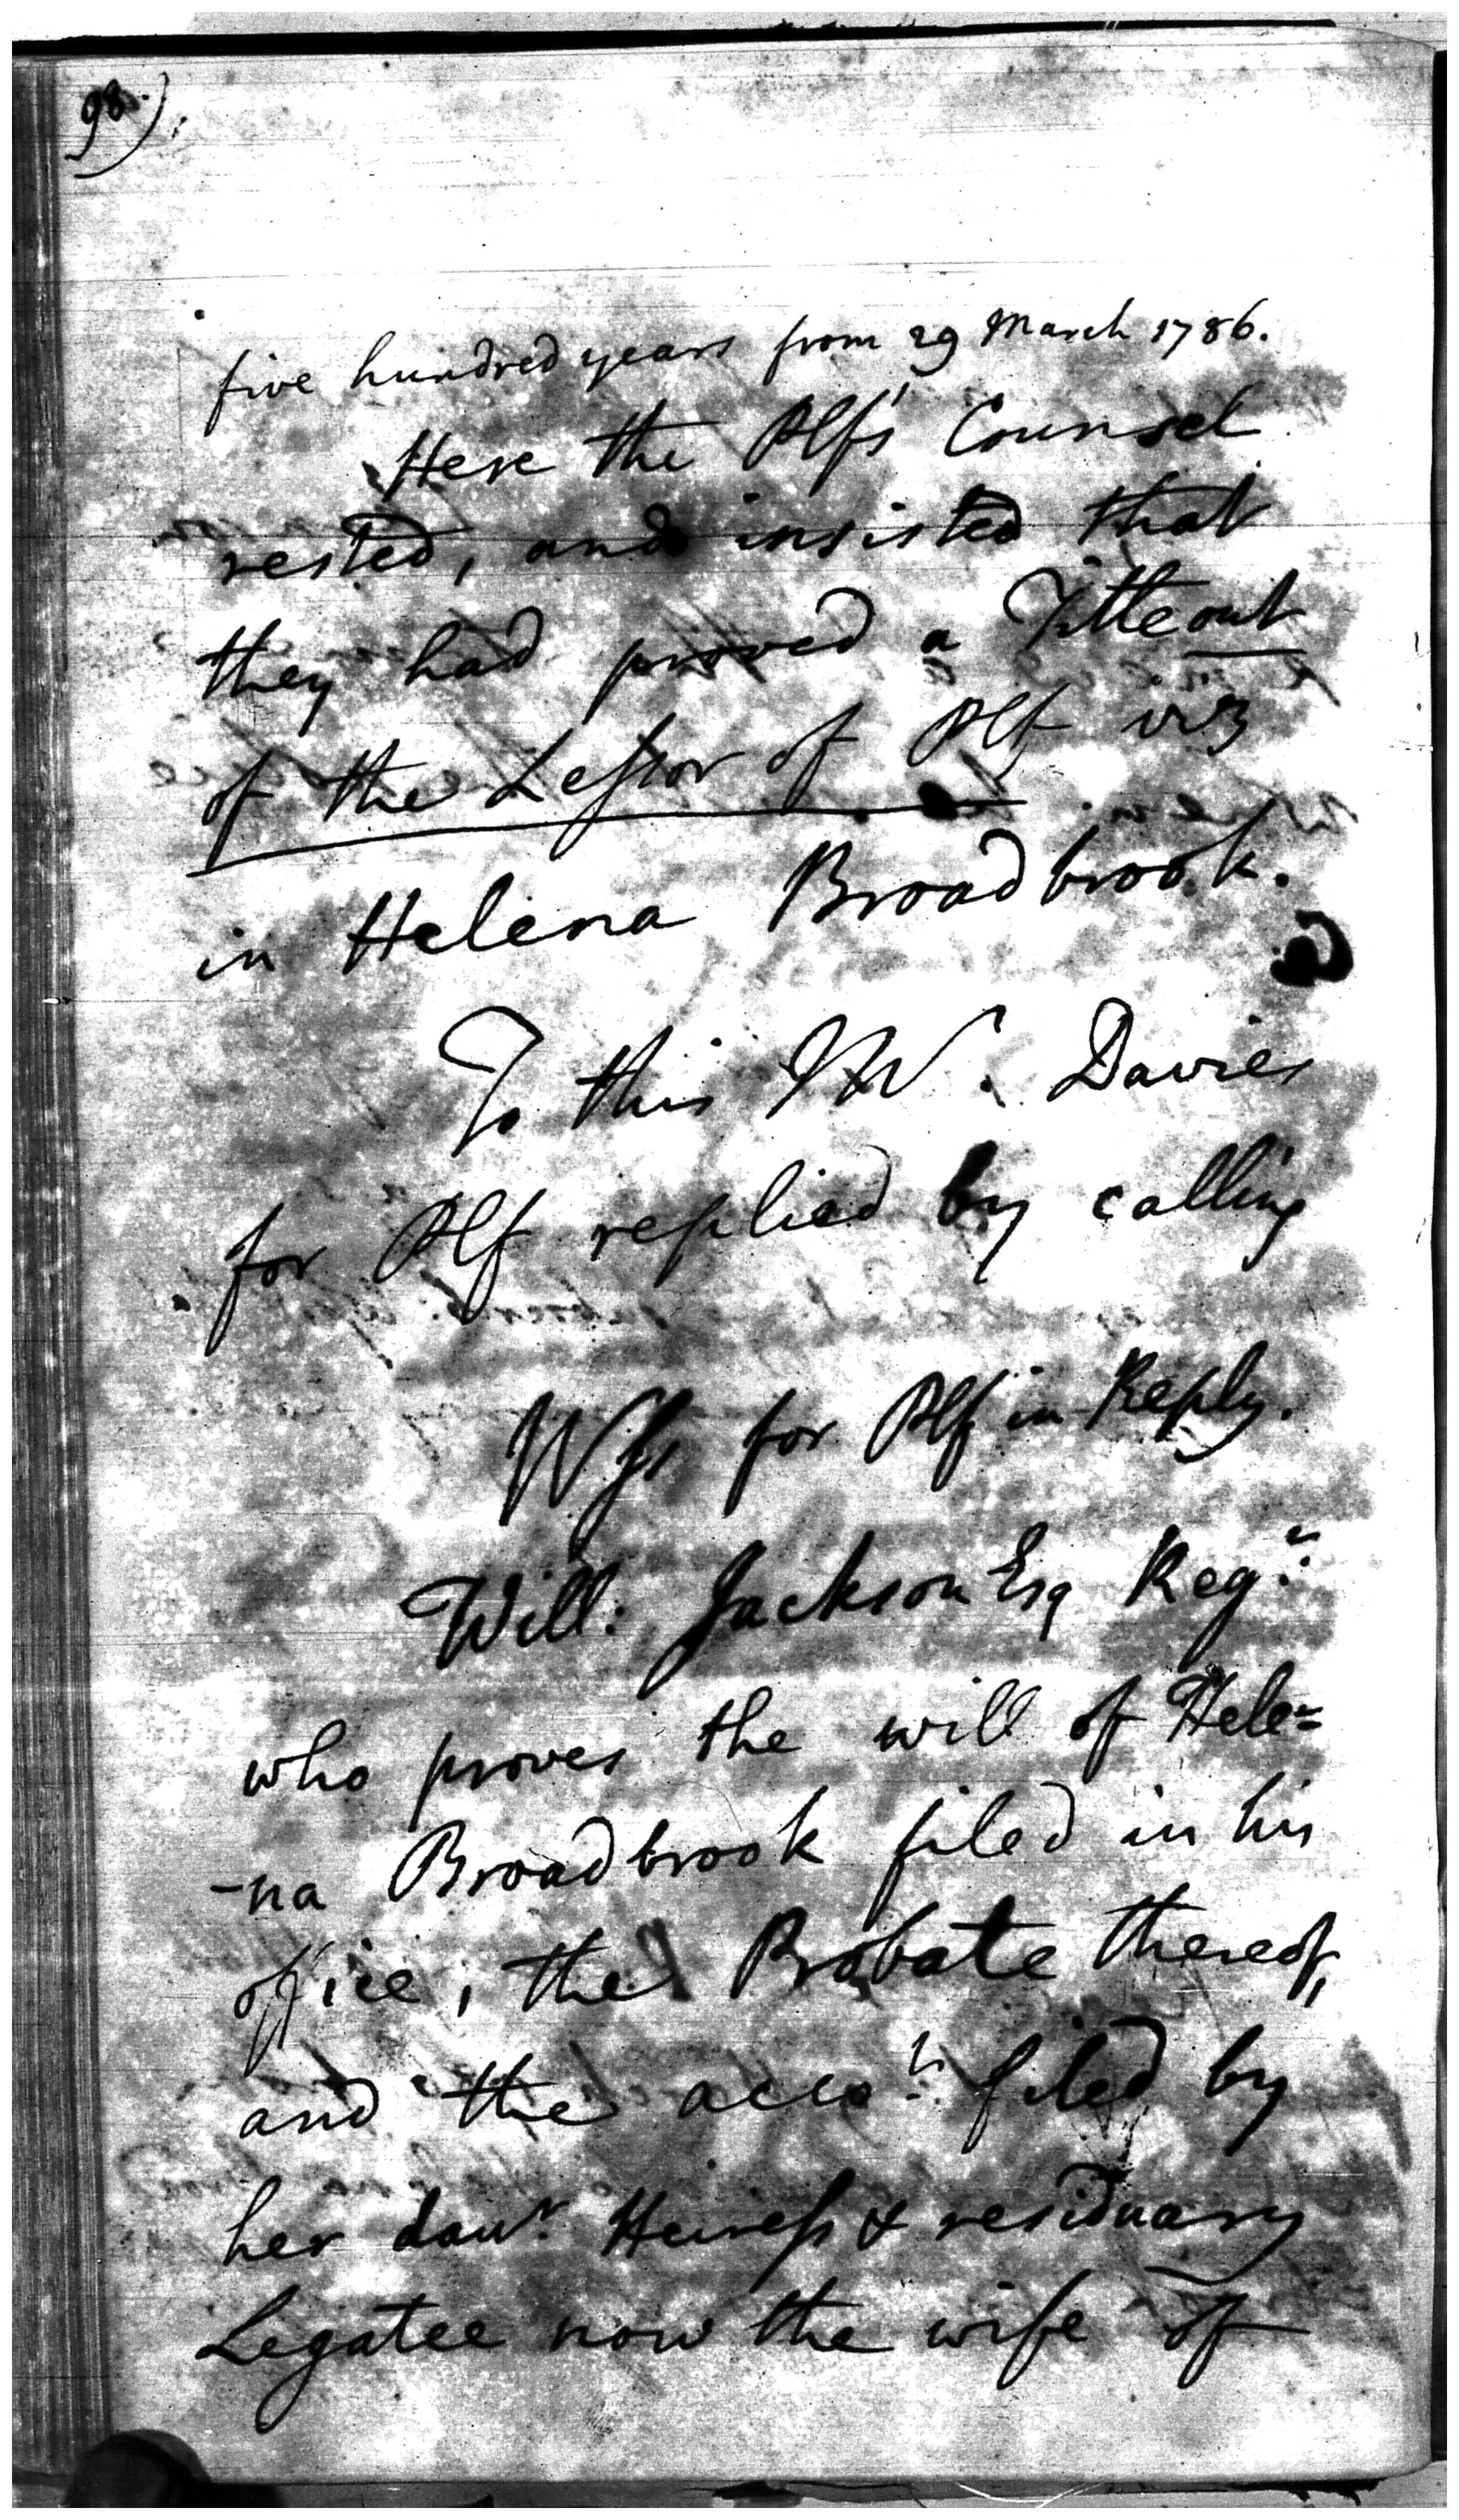 98.)
five hundred years from 29 March 1786.
Here the Plf's Counsel
rested, and insisted that
they had proved a Title out
of the Lessor of Plf viz
in Helena Broadbrook.
To this Mr. Davies
for Plf replied by calling
Wss for Plf in Reply.
Will: Jackson Esq Regr.
who proves the will of Hele=
-na Broadbrook filed in his
office, the Probate thereof,
and the accots. filed by
her daur. Heiress & residuary
Legatee now the wife of